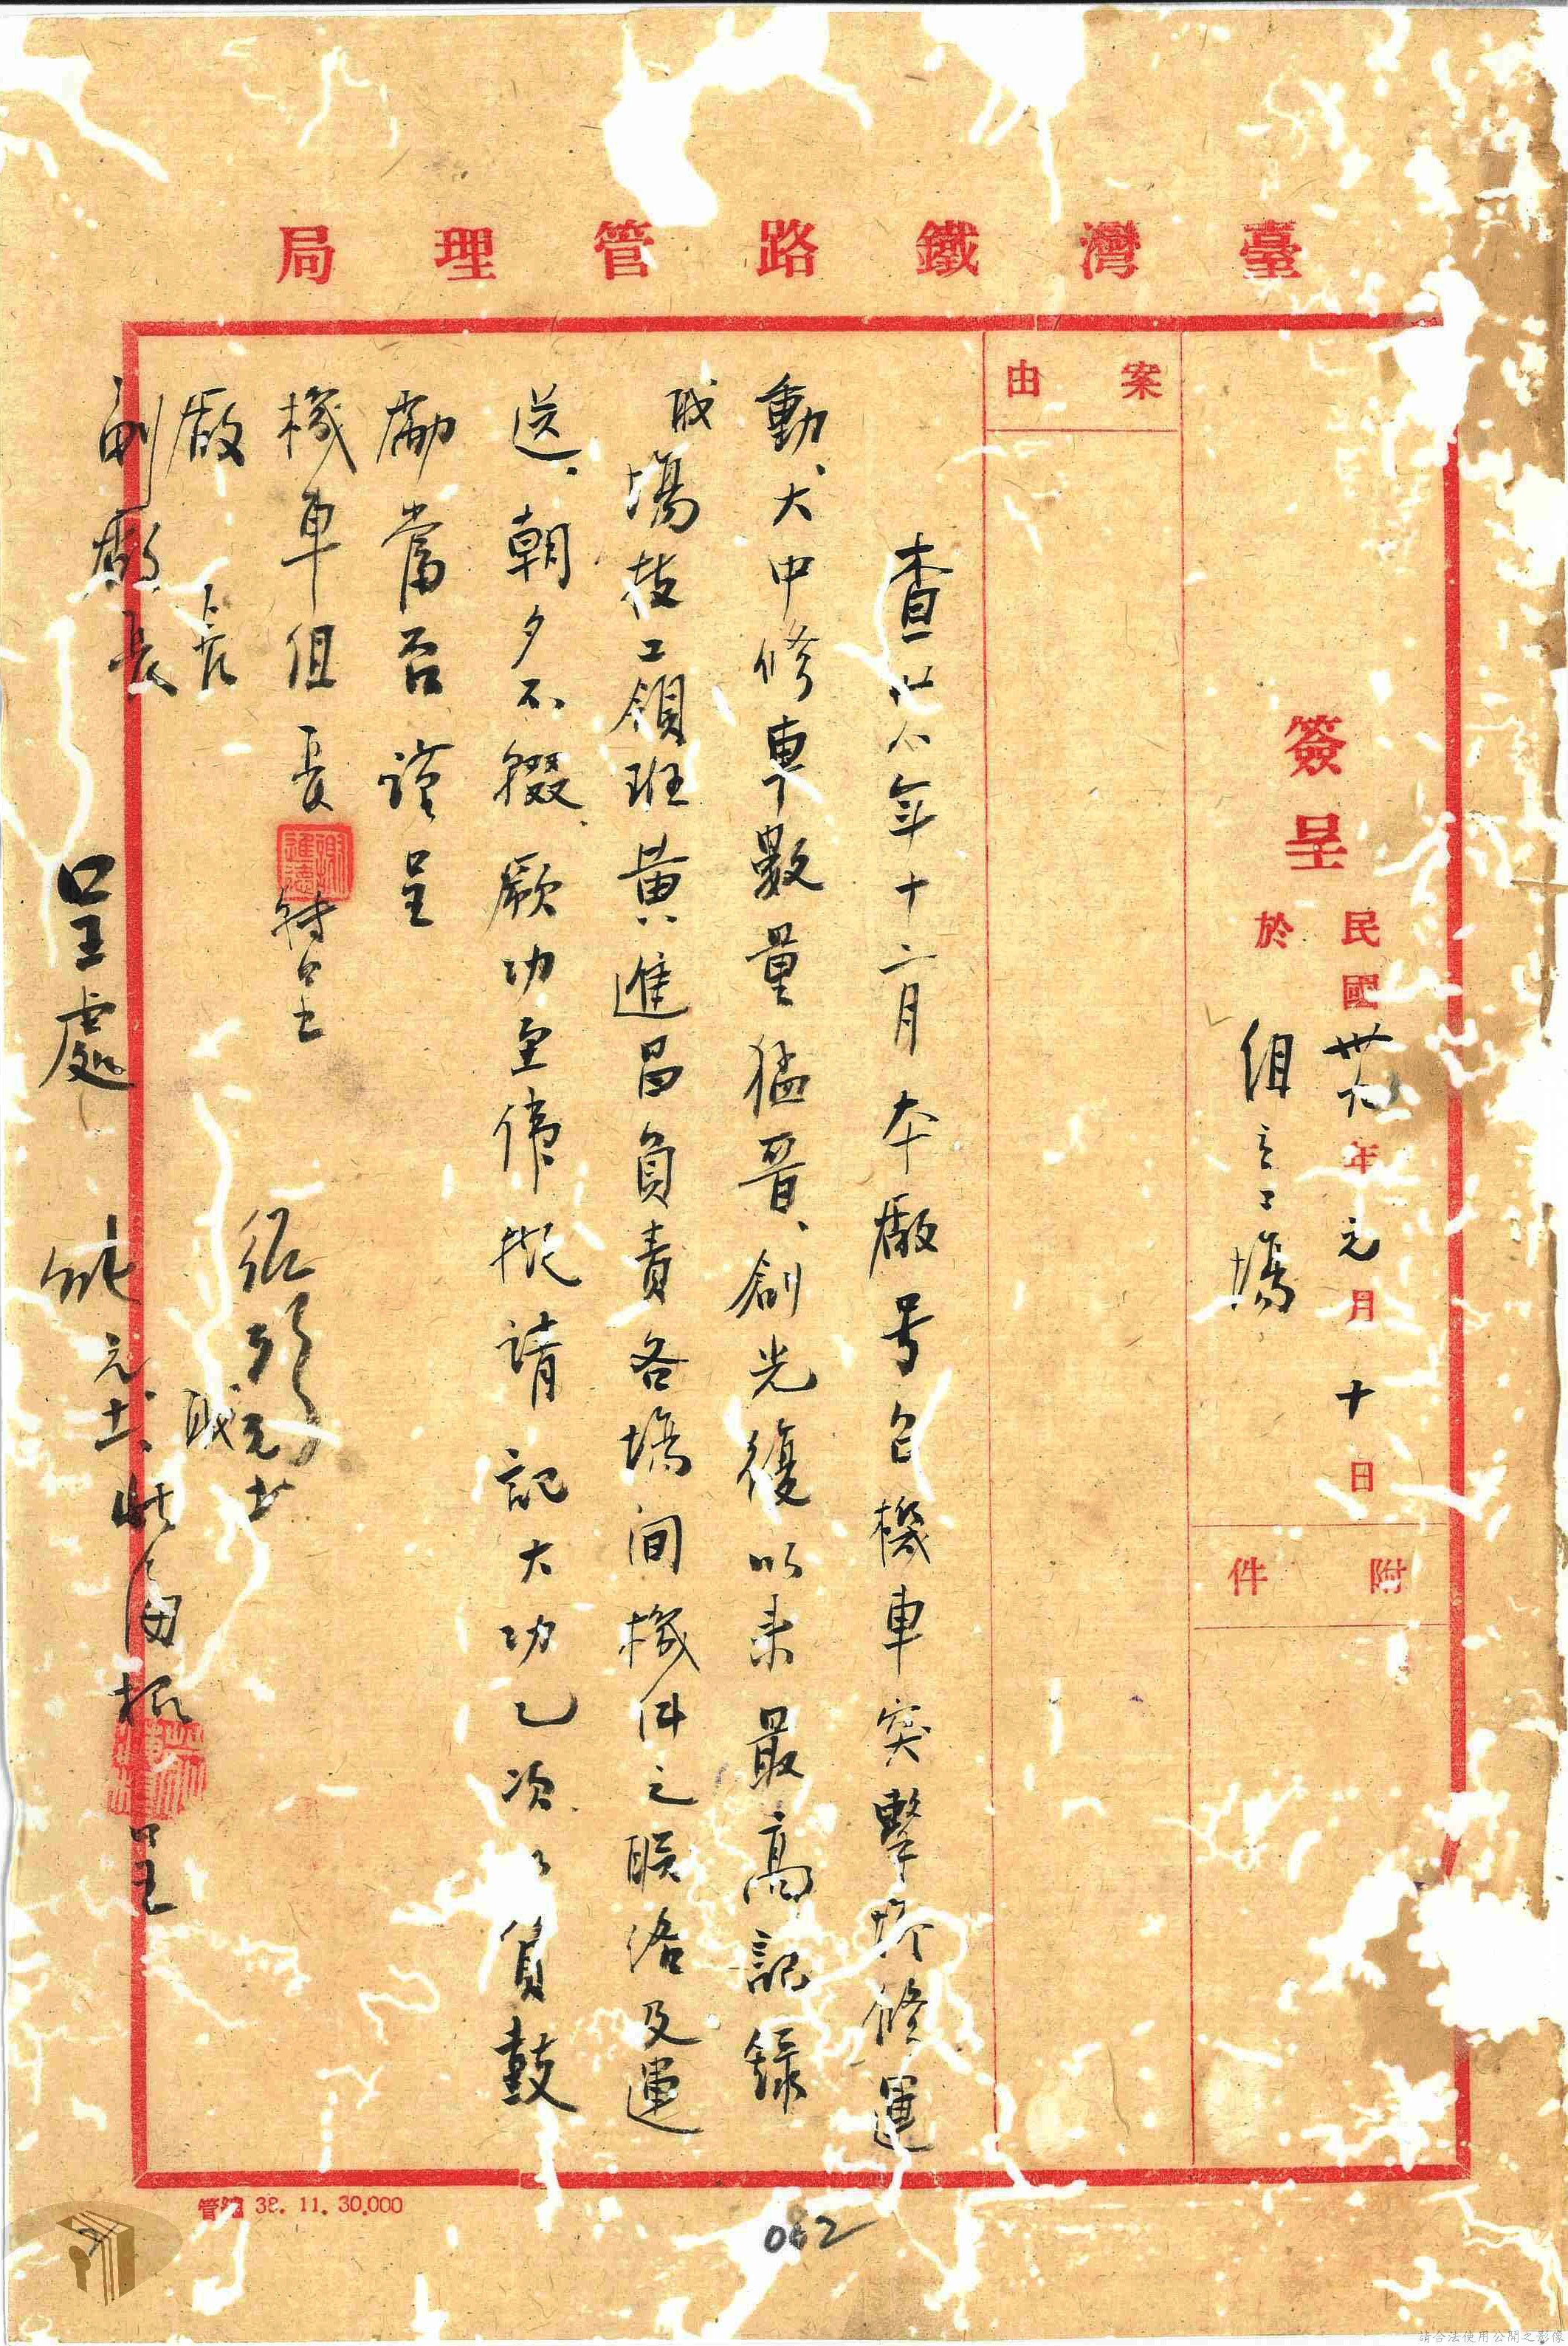 臺灣鐵路管理局
簽呈
民國卅九年元月十日
於組立工場
附件
案由
查卅八年十二月本廠号召機車突擊增修運
動、大中修車數量猛晉、創光復以来最高記錄
職場技工領班黃進昌負責各場间機件之联络及運
送、朝夕不輟、厥功至偉擬請記大功乙次以資鼓
勵當否謹呈
機車组長
謝進德
轉呈
廠長
副廠長
職
呈
呈處
元十一
管 38. 11. 30,000
062
請合法使用公開之影像